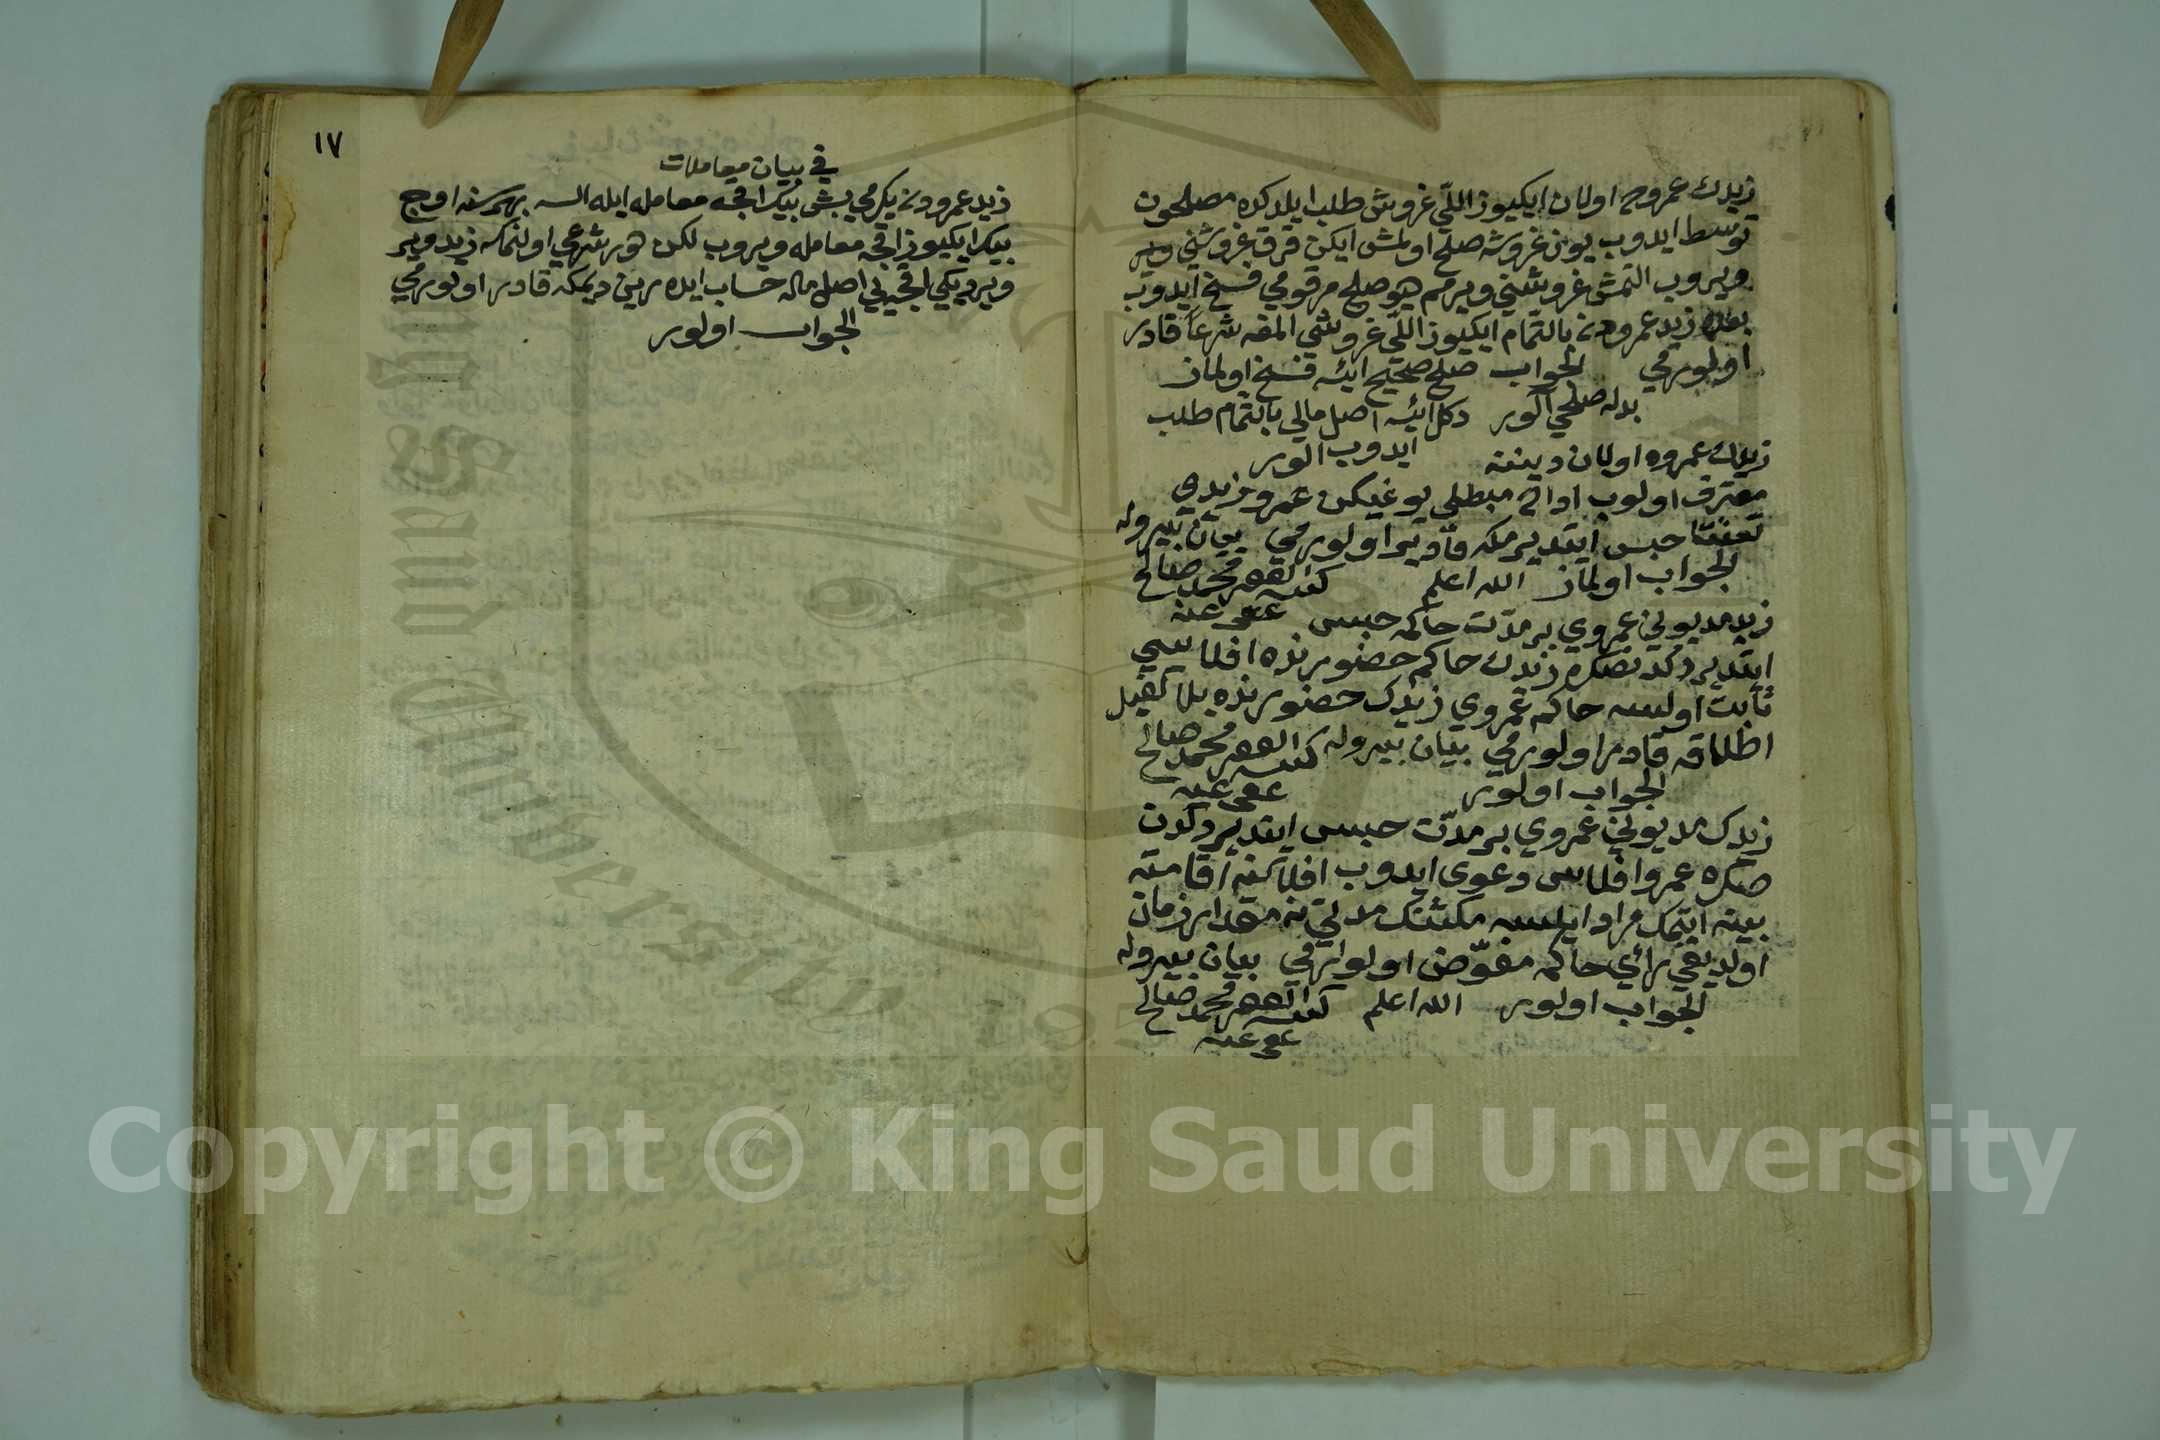 زيدك عمروه اولان ايكيوز اللّي غروش طلب ايلدكده مصلحون
توسط ايدوب يوز غروشه صلح اولمش ايكن قرق غروشني
ويروب التمش غروشني ويرمم هيو صلح مرقومي فسخ ايدوب
بعده زيد عمرودن بالتمام ايكيوز اللّي غروشي المغه شرعاً قادر
اولورمي الجواب صلح صحيح ايسه فسخ اولماز
بدله صلحي الور دكل ايسه اصل مالي بالتمام طلب
ايدوب الور
زيدك عمروه اولان ديننه
معترف اولوب اداده مبطلي يوغيكن عمرو زيدي
تعنتا حبس ايتديرمكه قادر اولورمي بيان بيروله
الجواب اولماز الله اعلم كتبه الفقير محمد صالح
عفي عنه
زيد مديوني عمروي بر مدّت حاكمه حبس
ايتديردكدنصكره زيدك حاكم حضورنده افلاسي
ثابت اولسه حاكم عمروي زيدك حضورنده بلا كفيل
اطلاقه قادر اولورمي بيان بيروله كتبه الفقير محمد صالح
الجواب اولور عفي عنه
زيدك مديوني عمروي بر مدّت حبس ايتديردكدن
صكره عمرو افلاس دعوى ايدوب افلاسنه اقامت
بينه ايتمك مراد ايلسه مكثنك مدتي نه مقدار زمان
اولديغي رأي حاكمه مفوّض اولورمي بيان بيروله
الجواب اولور الله اعلم كتبه الفقير محمد صالح
عفي عنه
١٧
في بيان معاملات
زيد عمرودن يكرمي بش بيك اقچه معامله ايله السه بهر سنه اوچ
بيك ايكيوز اقچه معامله ويروب لكن دور شرعي اولنمسه زيد
ويرديكي اقچه يي اصل ماله حساب ايده رين ديمكه قادر اولورمي
الجواب اولور
Copyright © King Saud University
King Saud University
1957